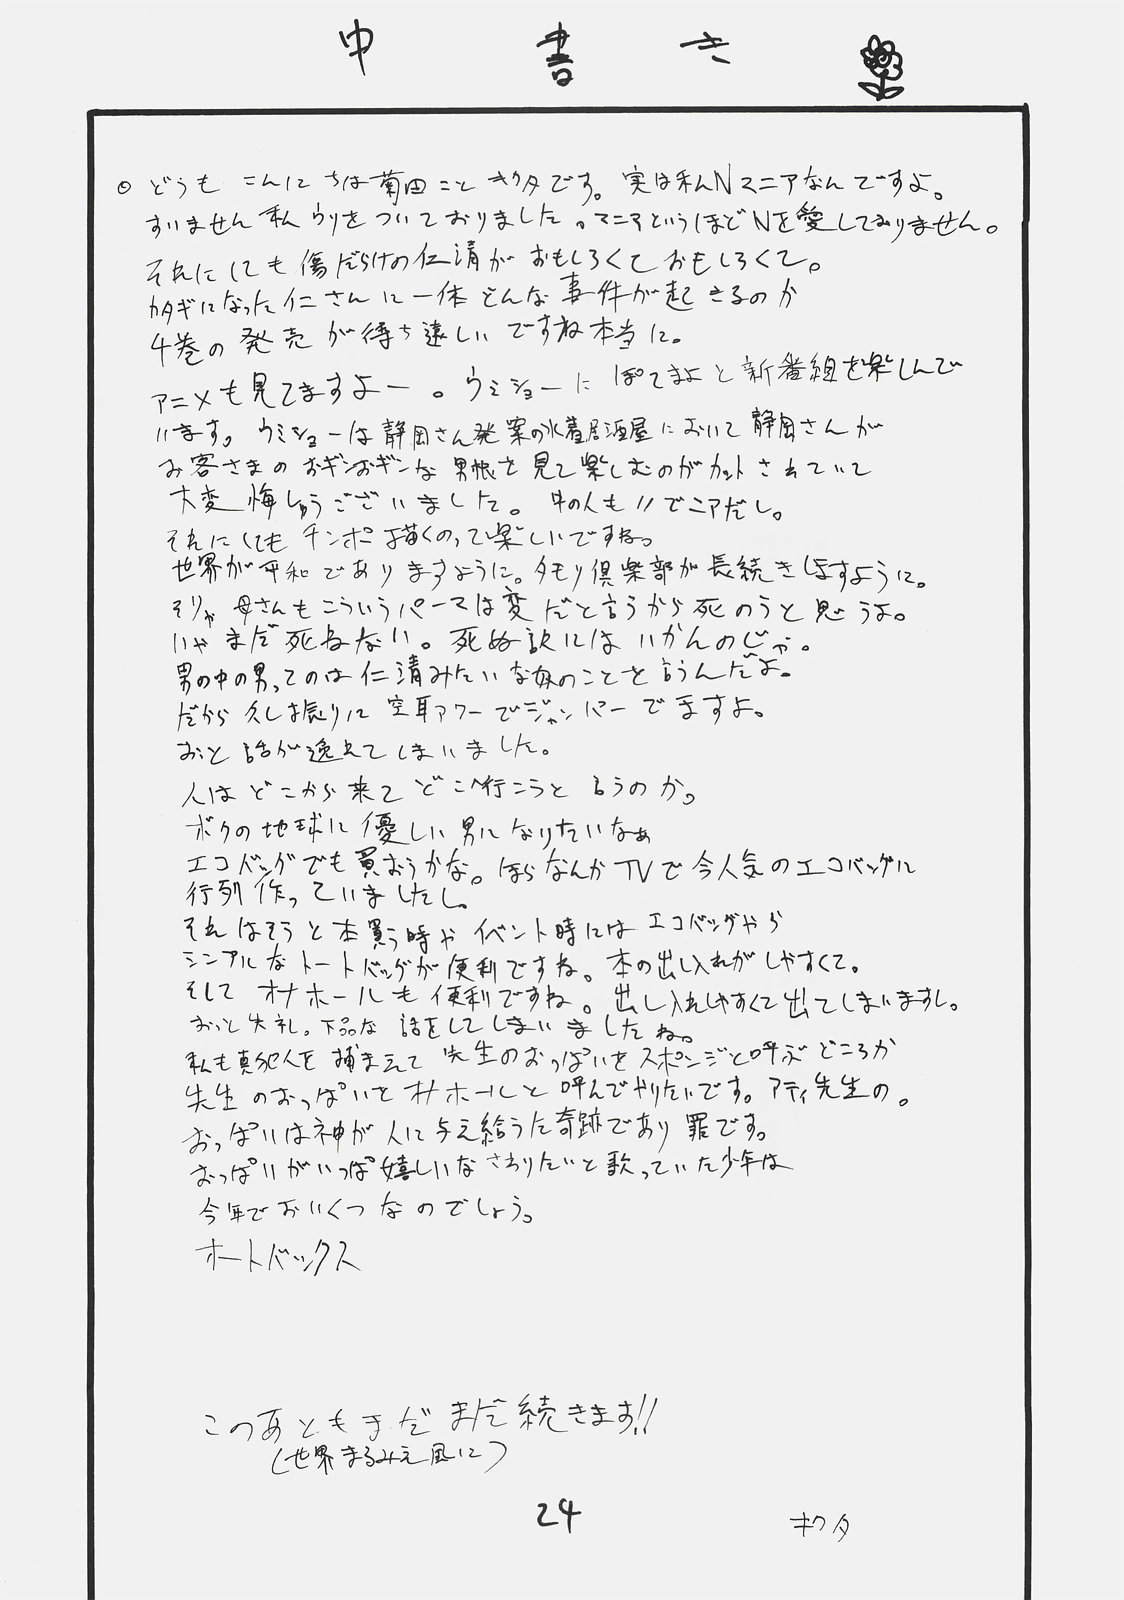 中書き
。どうもこんにちは菊田ことキクタです。実は私Nマニアなんですよ。
すいません私ウソをついておりました。マニアというほどNを愛しておりません。
それにしても傷だらけの仁清がおもしろくておもしろくて。
カタギになった仁さんに一体どんな事件が起きるのか
4巻の発売が待ち遠しいですね本当に。
アニメも見てますよー。ウミショーにぽてまよと新番組を楽しんで
います。ウミショーは静岡さん発案の水着居酒屋において静岡さんが
お客さまのおギンおギンな男根を見て楽しむのがカットされていて
大変悔しゅうございました。牛の人も!!でニアだし。
それにしてもチンポ描くのって楽しいですね。
世界が平和でありますように。タモリ倶楽部が長続きしますように。
そりゃ母さんもこういうパーマは変だと言うから死のうと思うよ。
いやまだ死ねない。死ぬ訳にはいかんのじゃ。
男の中の男ってのは仁清みたいな奴のことを言うんだよ。
だから久し振りに空耳アワーでジャンパーでますよ。
おっと話が逸れてしまいました。
人はどこから来てどこへ行こうと言うのか。
ボクの地球に優しい男になりたいなぁ
エコバッグでも買おうかな。ほらなんかTVで今人気のエコバッグに
行列作っていましたし。
それはそうと本買う時やイベント時にはエコバッグやら
シンプルなトートバッグが便利ですね。本の出し入れがしやすくて。
そしてオナホールも便利ですね。出し入れしやすくて出てしまいますし。
おっと失礼。下品な話をしてしまいましたね。
私も真犯人を捕まえて先生のおっぱいをスポンジと呼ぶどころか
先生のおっぱいをオナホールと呼んでやりたいです。アティ先生の。
おっぱいは神が人に与え給うた奇跡であり罪です。
おっぱいがいっぱ嬉しいなさわりたいと歌っていた少年は
今年でおいくつなのでしょう。
オートバックス
このあともまだまだ続きます!!
(世界まるみえ風に)
24
キクタ